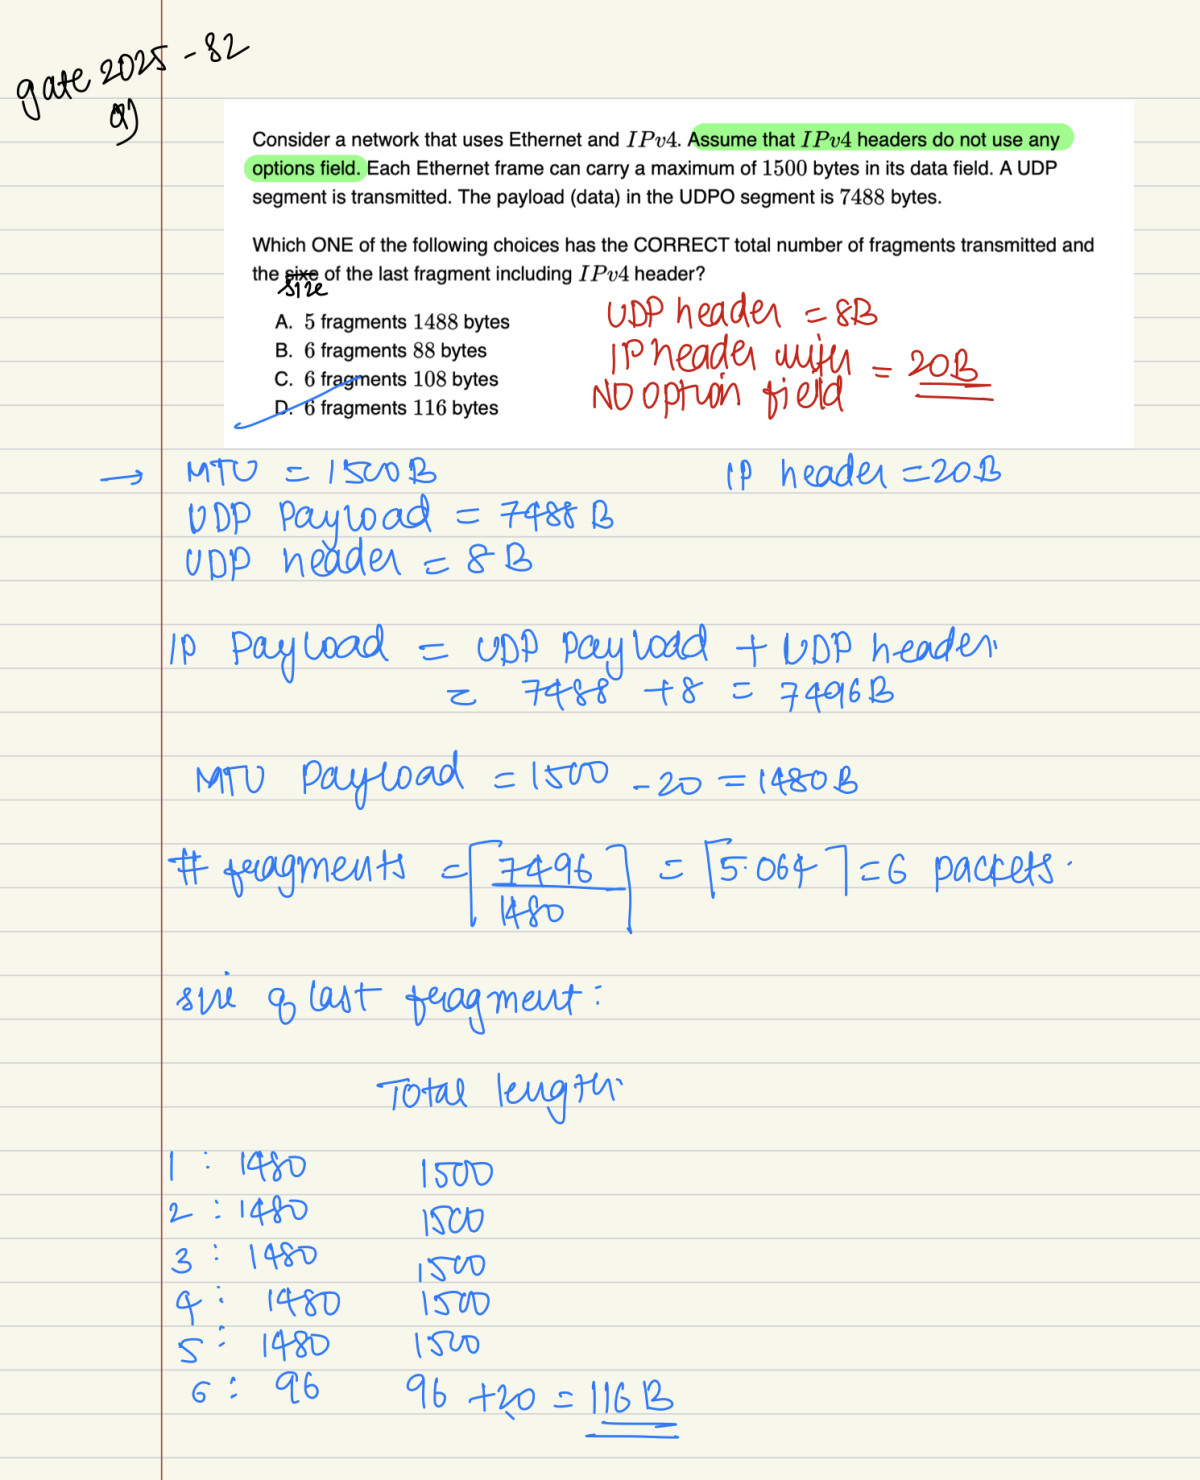 gate 2025 - S2
Q)
Consider a network that uses Ethernet and IPv4. Assume that IPv4 headers do not use any
options field. Each Ethernet frame can carry a maximum of 1500 bytes in its data field. A UDP
segment is transmitted. The payload (data) in the UDPO segment is 7488 bytes.
Which ONE of the following choices has the CORRECT total number of fragments transmitted and
the sixe of the last fragment including IPv4 header?
size
A. 5 fragments 1488 bytes
B. 6 fragments 88 bytes
C. 6 fragments 108 bytes
D. 6 fragments 116 bytes
UDP header = 8B
IP header with = 20B
NO option field
→ MTU = 1500B IP header = 20B
UDP Payload = 7488 B
UDP header = 8 B
IP Payload = UDP Payload + UDP header
= 7488 + 8 = 7496 B
MTU Payload = 1500 - 20 = 1480 B
# fragments = ⌈7496/1480⌉ = ⌈5.064⌉ = 6 packets.
size of last fragment :
Total length
1 : 1480 1500
2 : 1480 1500
3 : 1480 1500
4 : 1480 1500
5 : 1480 1500
6 : 96 96 + 20 = 116 B